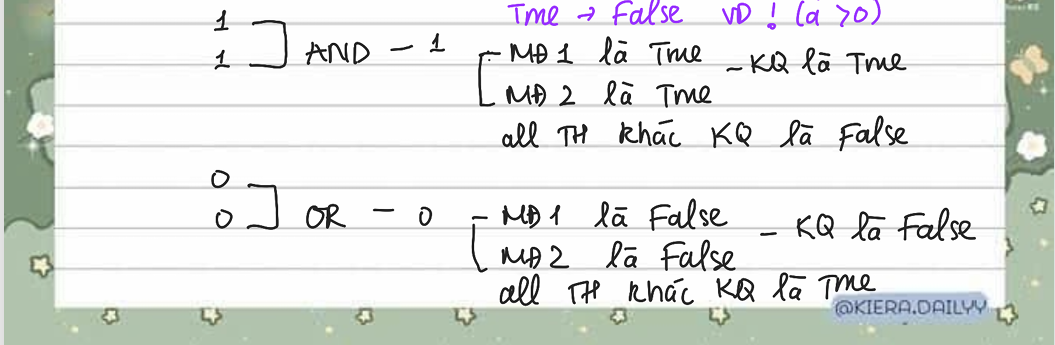 True → False VD ! (a >0)
1
1 AND - 1
MĐ 1 là True - KQ là True
MĐ 2 là True
all TH khác KQ là False
0
0 OR - 0
MĐ 1 là False - KQ là False
MĐ 2 là False
all TH khác KQ là True
@KIERA.DAILYY